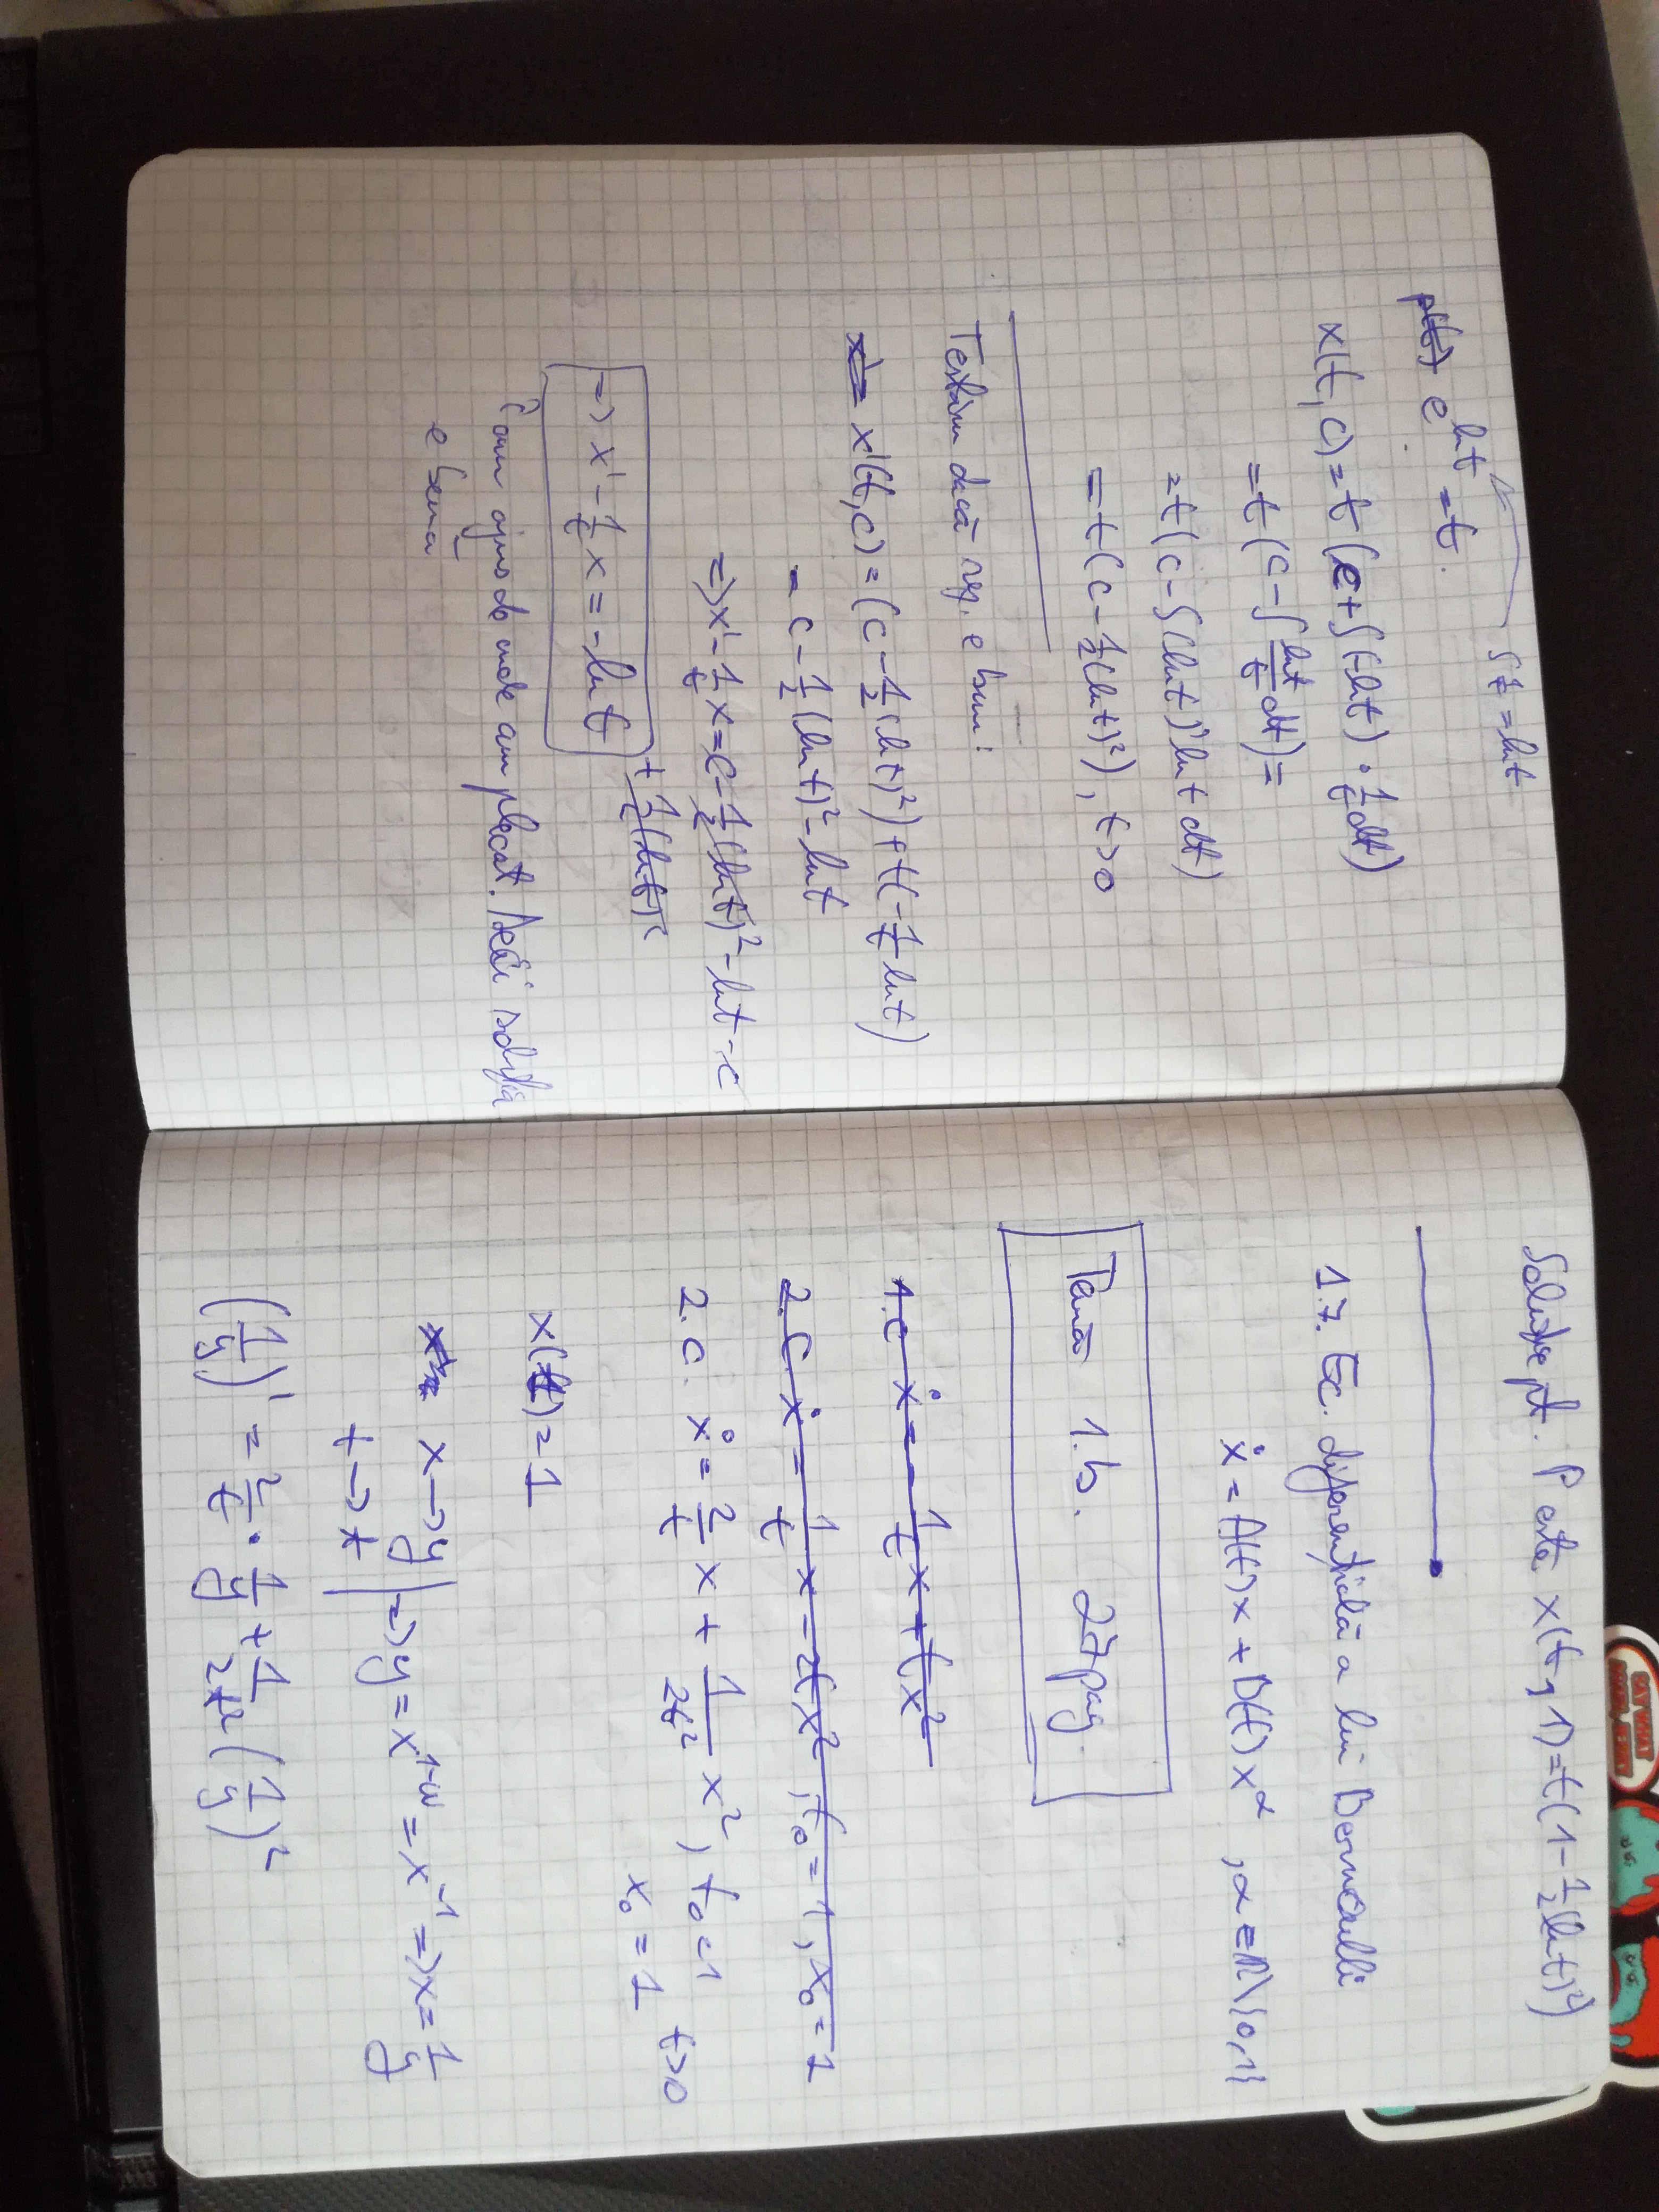 ∫1/t = ln t
e^{ln t} = t.
x(t, c) = t (c + ∫(-ln t) · 1/t dt)
= t (c - ∫ ln t/t dt) =
= t (c - ∫(ln t)' ln t dt)
= t (c - 1/2 (ln t)²), t > 0
Testăm dacă rez. e bun:
x'(t, c) = (c - 1/2 (ln t)²) + t(-1/t ln t)
= c - 1/2 (ln t)² - ln t
=> x' - 1/t x = c - 1/2 (ln t)² - ln t - c
+ 1/2 (ln t)²
=> x' - 1/t x = -ln t
am ajuns de unde am plecat. Deci soluția
e bună
Soluție pt. P este x(t, 1) = t (1 - 1/2 (ln t)²)
1.7. Ec. diferențială a lui Bernoulli
ẋ = A(t) x + B(t) x^α, α ∈ R \ {0, 1}
Temă 1.b. 27 pag.
1.c ẋ = - 1/t x + t x²
2.c ẋ = 1/t x - 2t x², t₀ = 1, x₀ = 1
2.c. ẋ = 2/t x + 1/2t² x², t₀ = 1 t > 0
x₀ = 1
x(1) = 1
x → y
t → t | => y = x^{1-α} = x^{-1} => x = 1/y
(1/y)' = 2/t · 1/y + 1/2t² (1/y)²
SAY WHAT